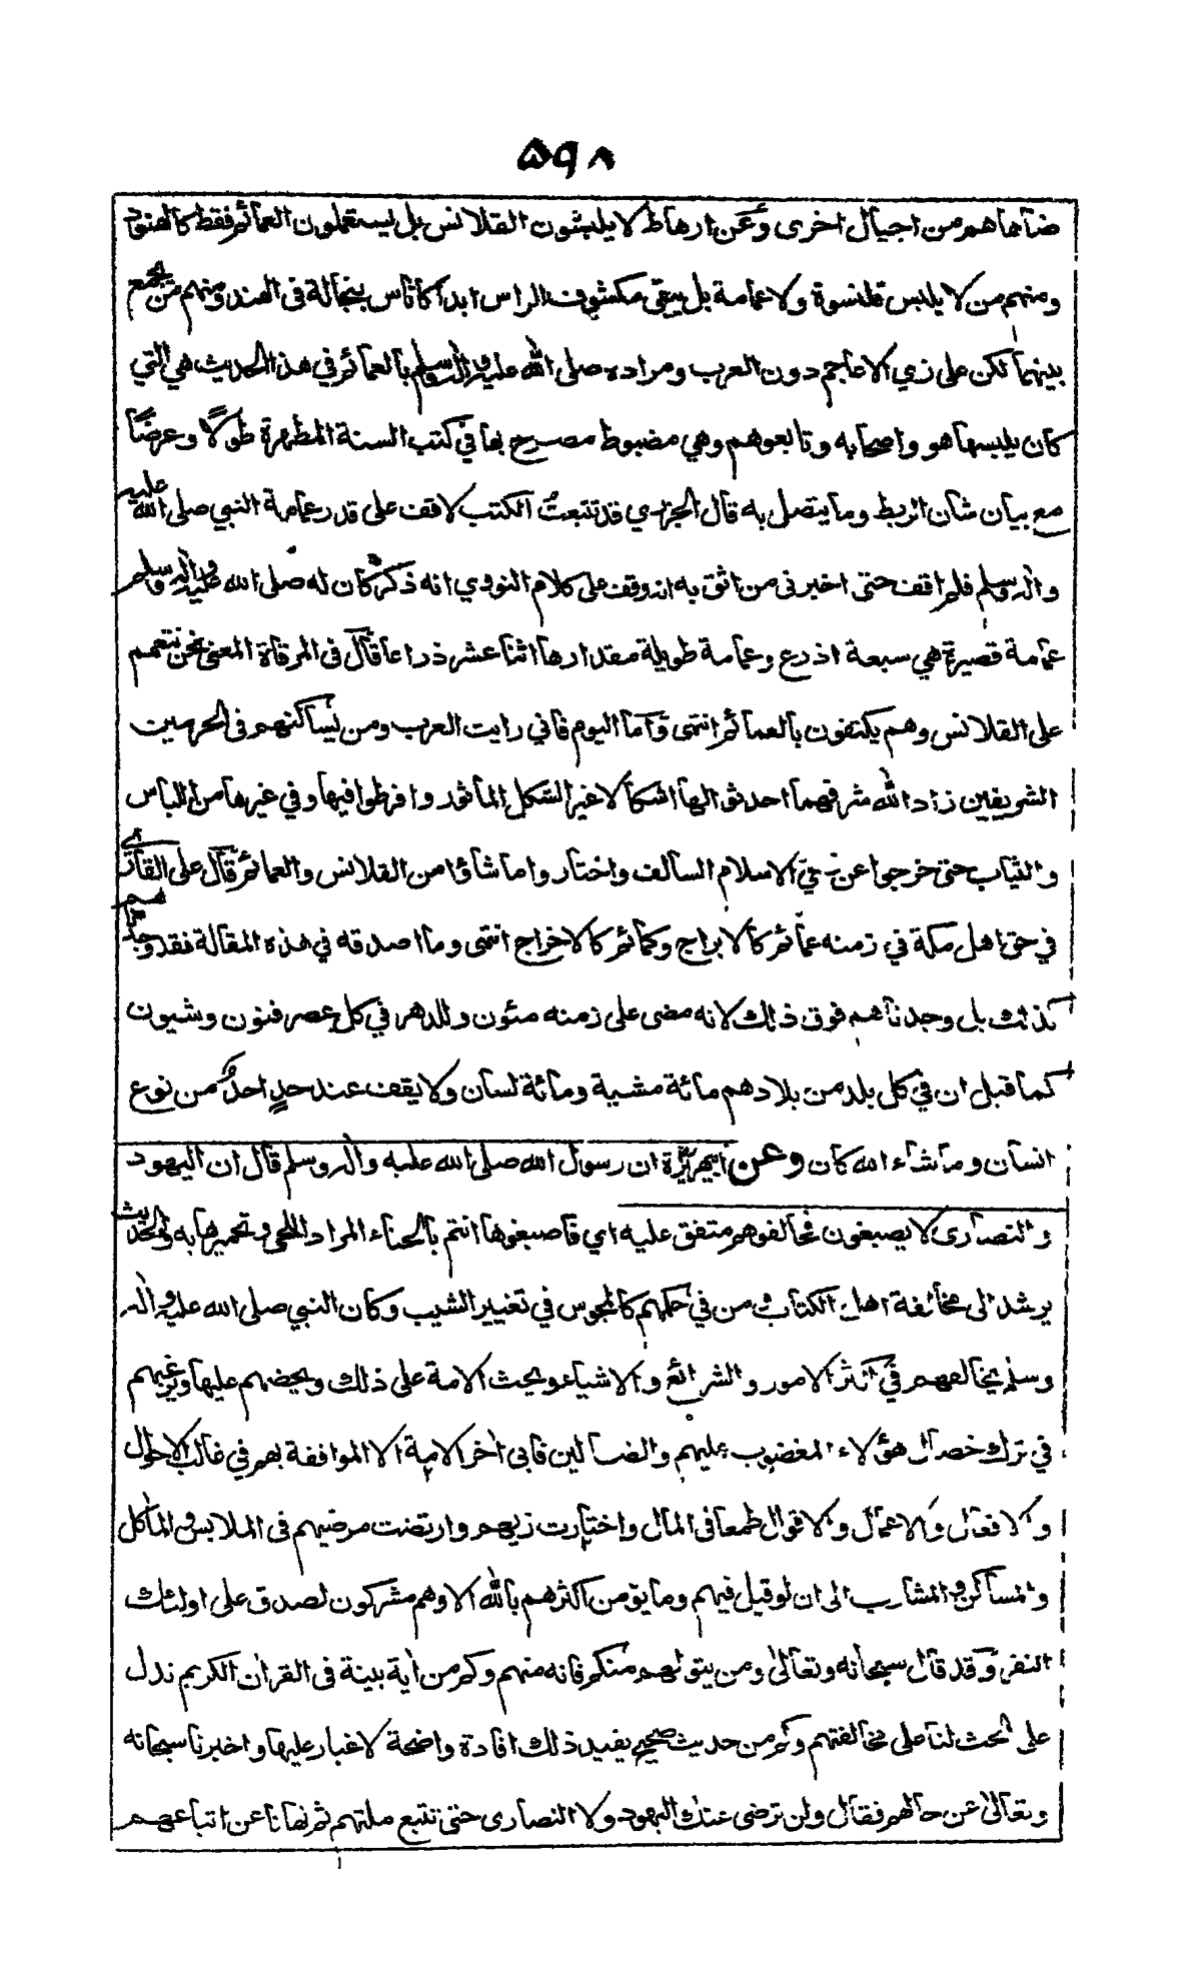 ٥٩٨
ضاهاهم من اجيال اخرى وعن ارهاط لا يلبسون القلانس بل يستعملون العمائم فقط كالهنود
ومنهم من لا يلبس قلنسوة ولا عمامة بل يبقى مكشوف الراس ابدا كاناس بنجالة فى الهند ومنهم من يجمع
بينهما لكن على زي الاعاجم دون العرب ومراده صلى الله عليه واله وسلم بالعمائم في هذا الحديث هي التي
كان يلبسها هو واصحابه وتابعوهم وهي مضبوط مصرح بها في كتب السنة المطهرة طولًا وعرضًا
مع بيان شان الربط وما يتصل به قال الجزري قد تتبعت الكتب لاقف على قدر عمامة النبي صلى الله عليه
واله وسلم فلم اقف حتى اخبرنى من اثق به انه وقف على كلام النووي انه ذكر كان له صلى الله عليه واله وسلم
عمامة قصيرة هي سبعة اذرع وعمامة طويلة مقدارها اثنا عشر ذراعا قال فى المرقاة المعنى نحن نتعمم
على القلانس وهم يكتفون بالعمائم انتهى واما اليوم فاني رايت العرب ومن يساكنهم فى الحرمين
الشريفين زاد الله شرفهما احدثوا لها اشكالا غير الشكل المأثور وافرطوا فيها وفي غيرها من اللباس
والثياب حتى خرجوا عن زي الاسلام السالف واختاروا ما شاؤا من القلانس والعمائم قال على القاري
في حق اهل مكة في زمنه عمائم كالابراج وكمائم كالاخراج انتهى وما اصدقه في هذه المقالة فقد وجدناهم
كذلك بل وجدناهم فوق ذلك لانه مضى على زمنه مئون وللدهر في كل عصر فنون وشيون
كما قيل ان في كل بلد من بلادهم مائة مشية ومائة لسان ولا يقف عند حدٍ احدٌ من نوع
انسان وما شاء الله كان وعن ابي هريرة ان رسول الله صلى الله عليه واله وسلم قال ان اليهود
والنصارى لا يصبغون فخالفوهم متفق عليه اي فاصبغوها انتم بالحناء المراد اللحى وتحميرها به والحديث
يرشد الى مخالفة اهل الكتاب ومن في حكمهم كالمجوس في تغيير الشيب وكان النبي صلى الله عليه واله
وسلم يخالفهم في اكثر الامور والشرائع والاشياء ويحث الامة على ذلك ويحضهم عليها ويرغبهم
في ترك خصال هؤلاء المغضوب عليهم والضالين فابى اخر الامة الا الموافقة بهم في غالب الاحوال
والافعال والاعمال والاقوال طمعا فى المال واختارت زيهم وارتضت مرضيهم فى الملابس والمآكل
والمساكن والمشارب الى ان لو قيل فيهم وما يؤمن اكثرهم بالله الا وهم مشركون لصدق على اولئك
النفر وقد قال سبحانه وتعالى ومن يتولهم منكم فانه منهم وكم من اية بينة فى القران الكريم تدل
على الحث لنا على مخالفتهم وكم من حديث صحيح يفيد ذلك افادة واضحة لا غبار عليها واخبرنا سبحانه
وتعالى عن حالهم فقال ولن ترضى عنك اليهود ولا النصارى حتى تتبع ملتهم ثم نهانا عن اتباعهم